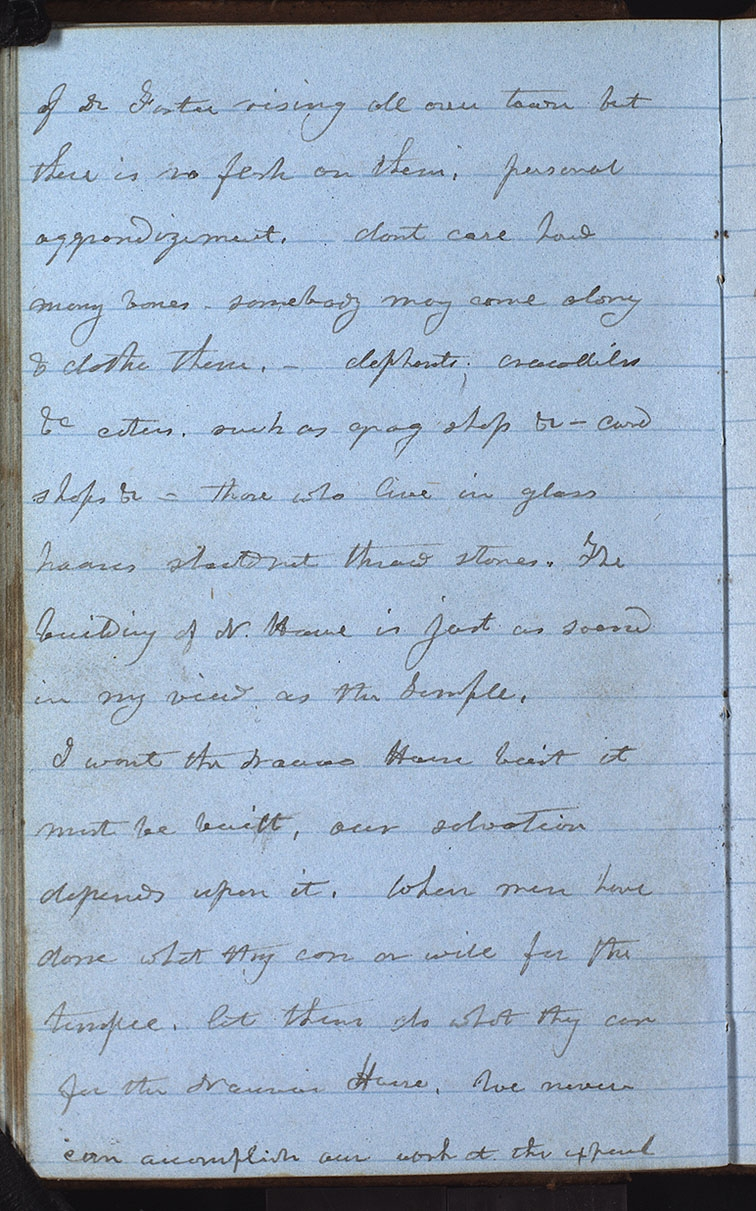 of Dr Foster rising all over town but
there is no flesh on them. personal
aggrandizement. dont care how
many bones. somebody may come along
& clothe them. – elephants, crocodiles
&c eaters. such as grog shops &c – card
shops &c – those who live in glass
houses should not throw stones. The
building of N. House is just as sacred
in my view as the temple.
I want the Nauvoo House built it
must be built, our salvation
depends upon it. When men have
done what they can or will for the
temple. let them do what they can
for the Nauvoo House. We never
can accomplish our work at the expense